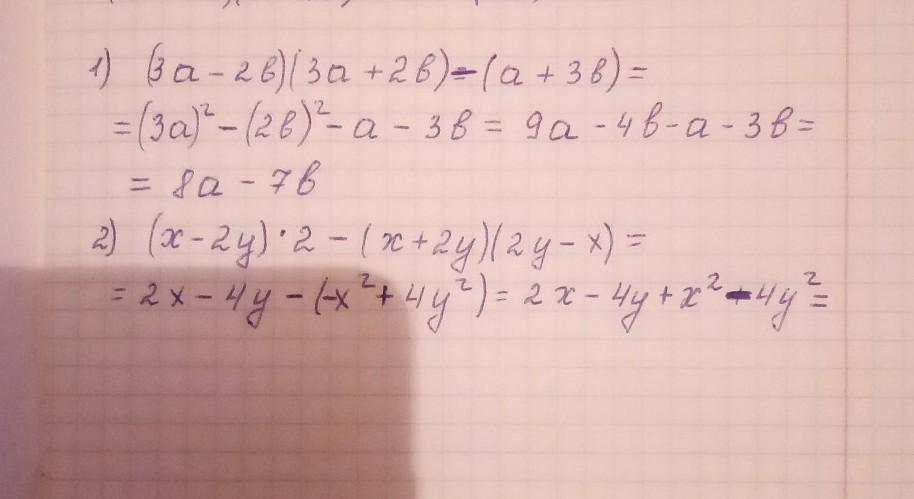 1) (3a - 2в)(3a + 2в) - (a + 3в) =
= (3a)² - (2в)² - a - 3в = 9a - 4в - a - 3в =
= 8a - 7в
2) (x - 2y) · 2 - (x + 2y)(2y - x) =
= 2x - 4y - (-x² + 4y²) = 2x - 4y + x² - 4y² =